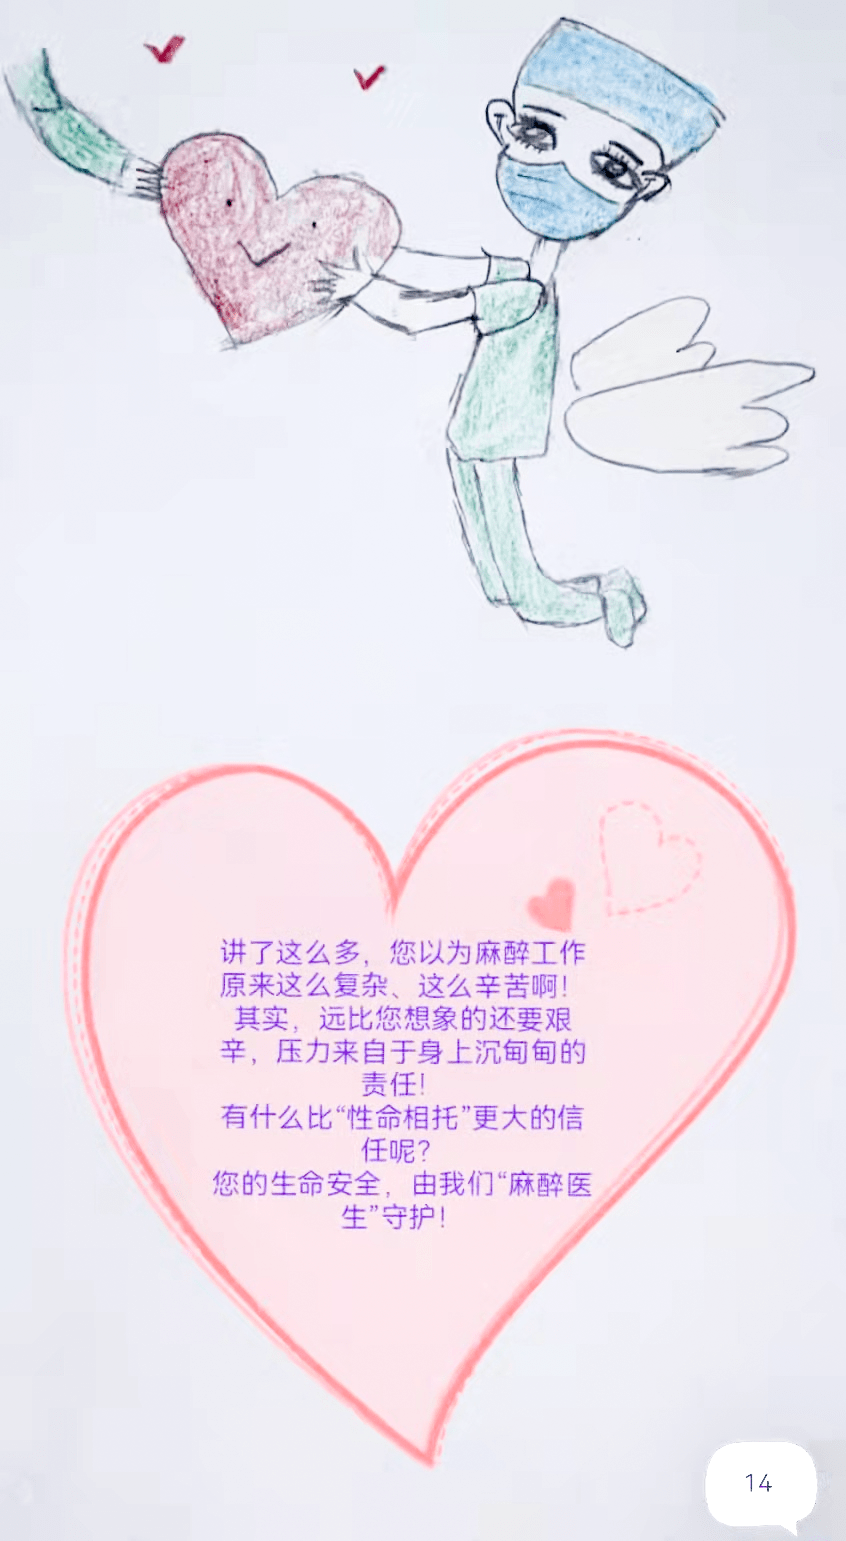 讲了这么多，您以为麻醉工作
原来这么复杂、这么辛苦啊！
其实，远比您想象的还要艰
辛，压力来自于身上沉甸甸的
责任！
有什么比“性命相托”更大的信
任呢？
您的生命安全，由我们“麻醉医
生”守护！
14